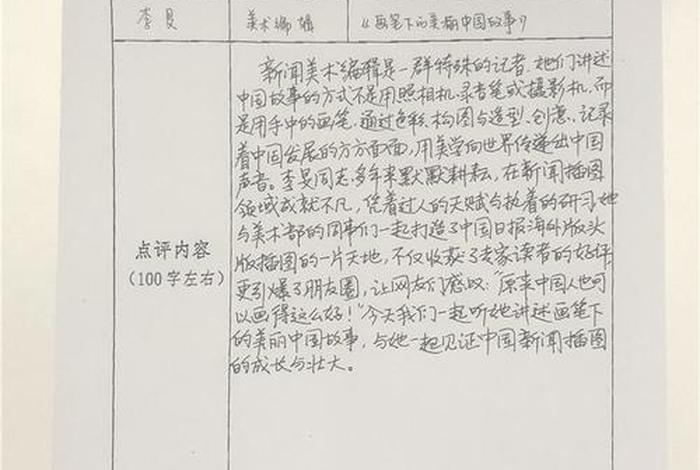 李旻 美术编辑 《画笔下的美丽中国故事》
新闻美术编辑是一群特殊的记者,她们讲述
中国故事的方式不是用照相机、录音笔或摄影机,而
是用手中的画笔,通过色彩、构图与造型、创意,记录
着中国发展的方方面面,用美学向世界传递出中国
声音。李旻同志多年来默默耕耘,在新闻插图
领域成就不凡,凭着过人的天赋与执着的研习,她
与美术部的同事们一起打造了中国日报海外版头
版插图的一片天地,不仅收获了专家读者的好评,
更引爆了朋友圈,让网友们感叹:“原来中国人也可
以画得这么好!”今天我们一起听她讲述画笔下
的美丽中国故事,与她一起见证中国新闻插图
的成长与壮大。
点评内容
(100字左右)